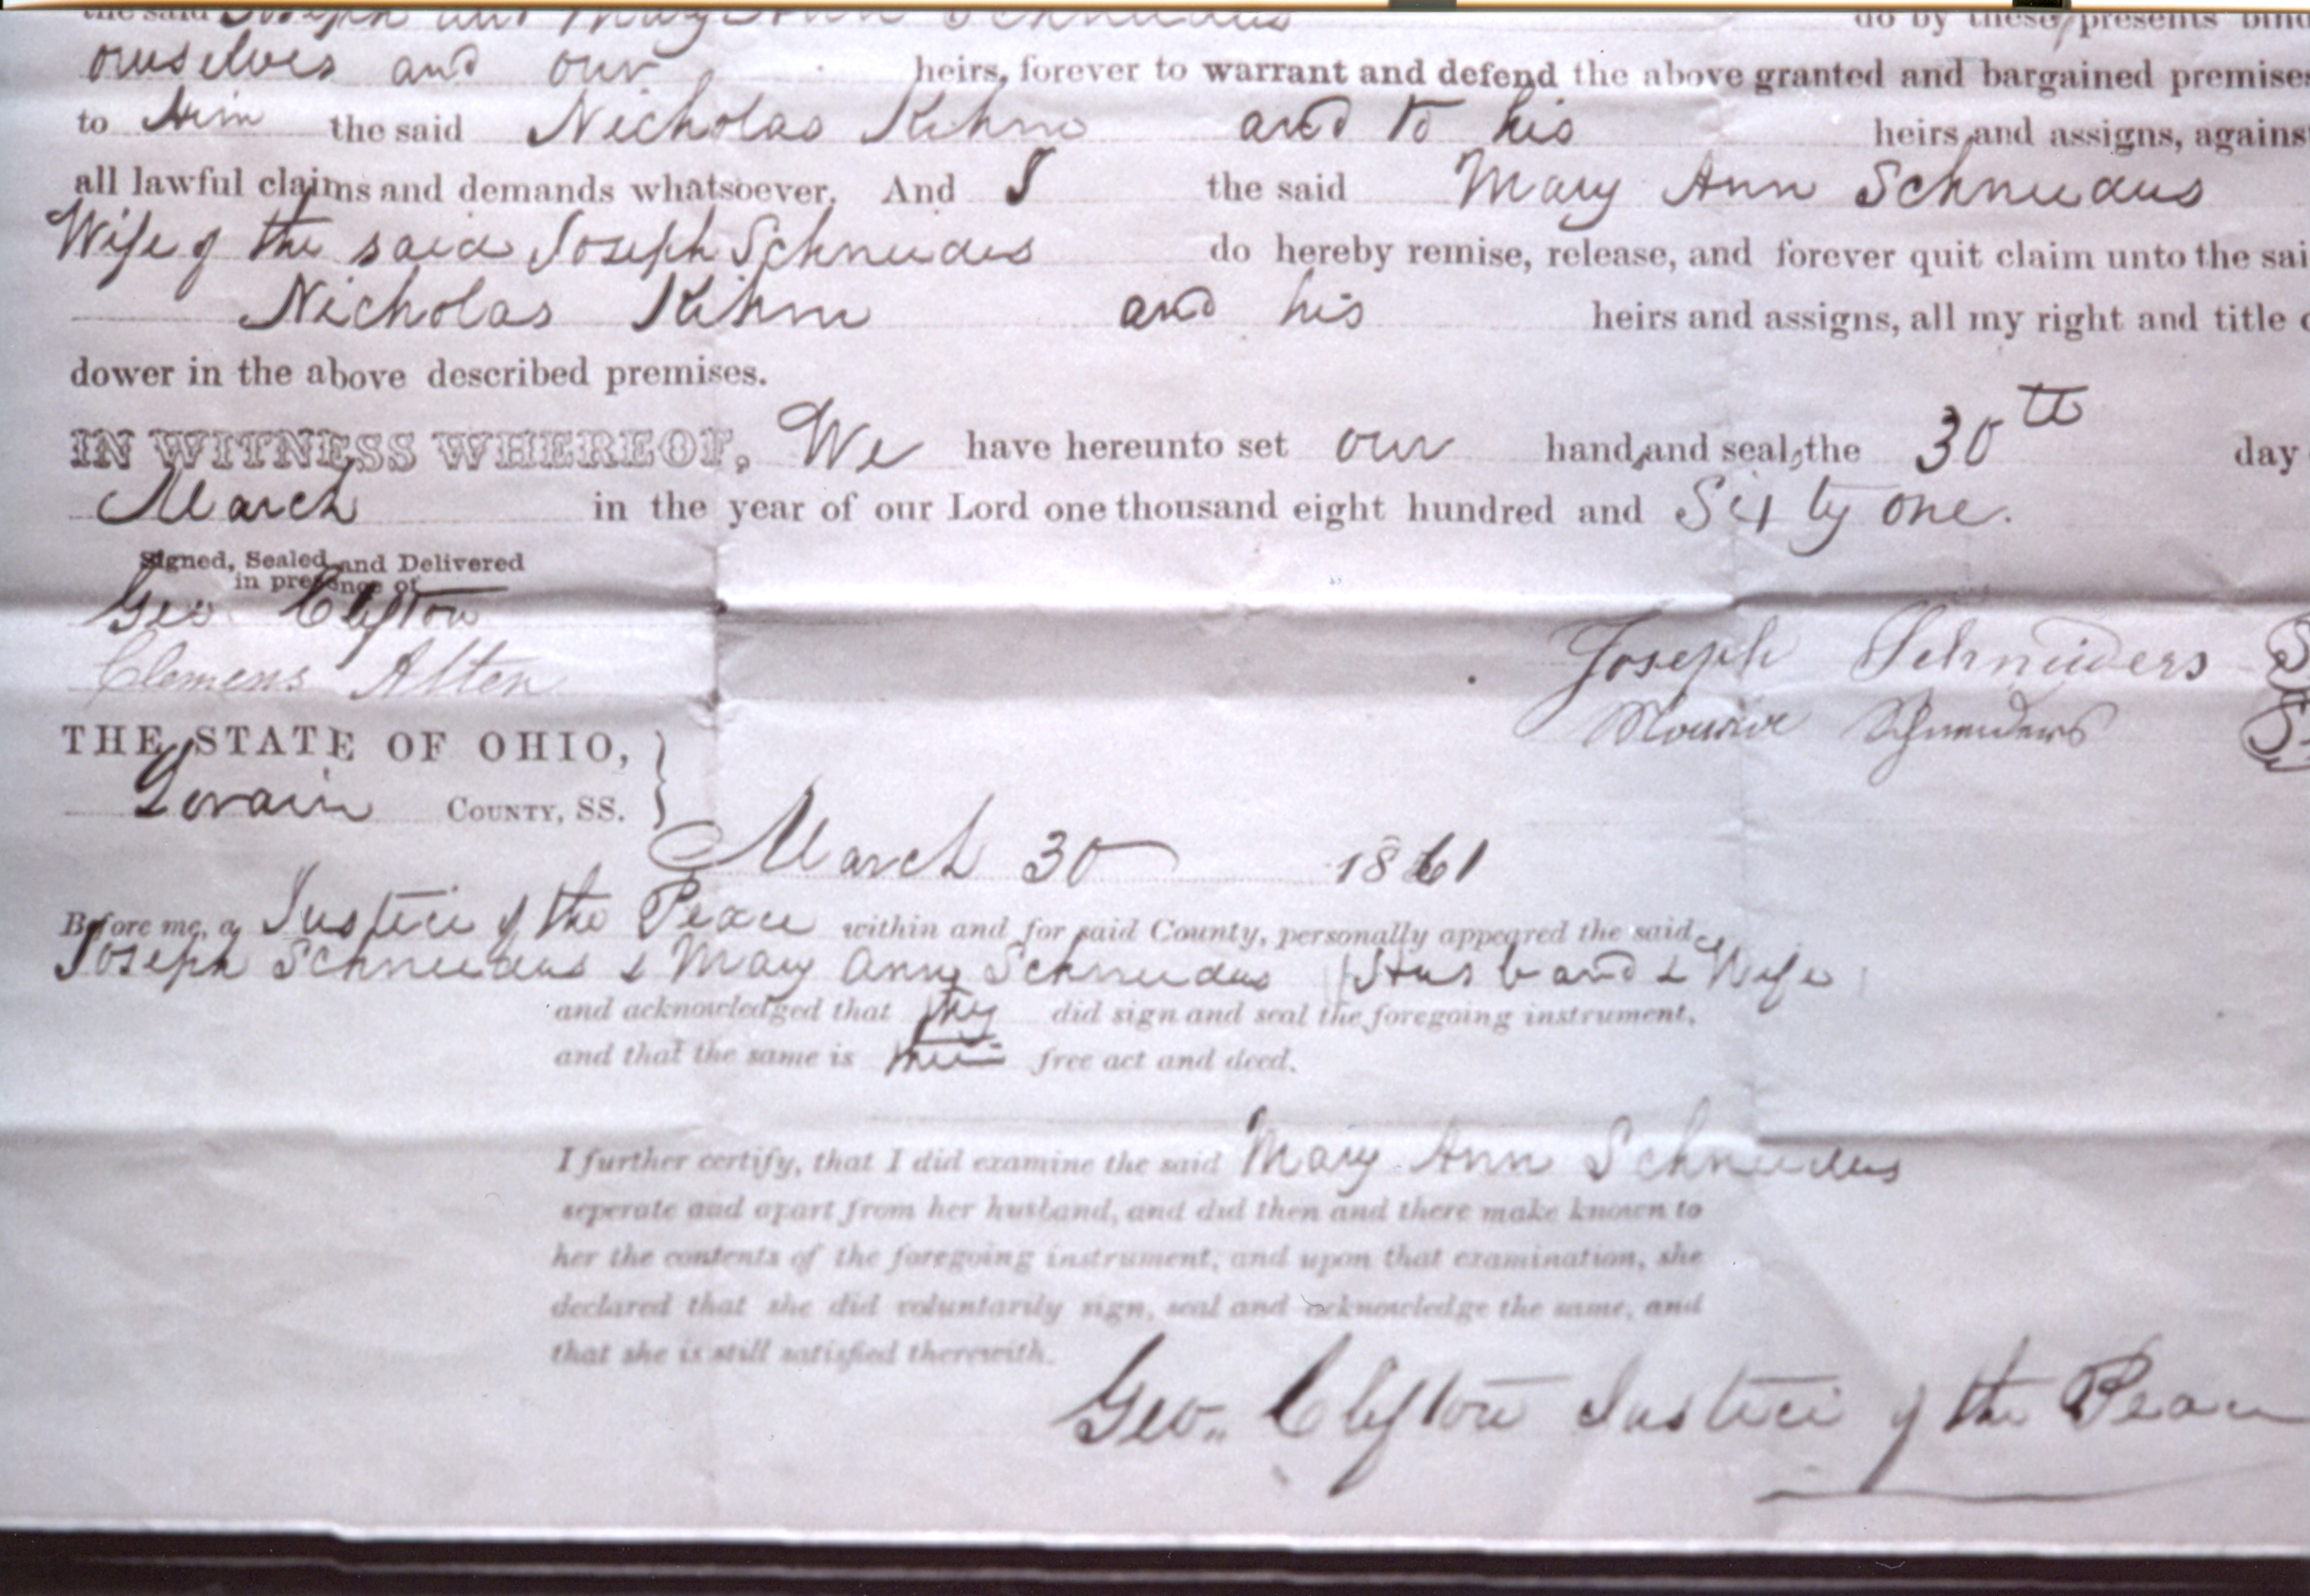 the said Joseph and Mary Ann Schneiders do by these presents bind
ourselves and our heirs, forever to warrant and defend the above granted and bargained premises
to Him the said Nicholas Kihm and to his heirs and assigns, against
all lawful claims and demands whatsoever. And I the said Mary Ann Schneiders
Wife of the said Joseph Schneiders do hereby remise, release, and forever quit claim unto the sai
Nicholas Kihm and his heirs and assigns, all my right and title
dower in the above described premises.
IN WITNESS WHEREOF, We have hereunto set our hands and seals, the 30th day
March in the year of our Lord one thousand eight hundred and Sixty one.
Signed, Sealed and Delivered
in presence of
Geo. Clifton
Clemens Alten
Joseph Schneiders
Schneiders
THE STATE OF OHIO,
Lorain COUNTY, SS.
March 30 1861
Before me, a Justice of the Peace within and for said County, personally appeared the said
Joseph Schneiders & Mary Ann Schneiders (Husband & Wife)
and acknowledged that they did sign and seal the foregoing instrument,
and that the same is their free act and deed.
I further certify, that I did examine the said Mary Ann Schneiders
seperate and apart from her husband, and did then and there make known to
her the contents of the foregoing instrument, and upon that examination, she
declared that she did voluntarily sign, seal and acknowledge the same, and
that she is still satisfied therewith.
Geo. Clifton Justice of the Peace